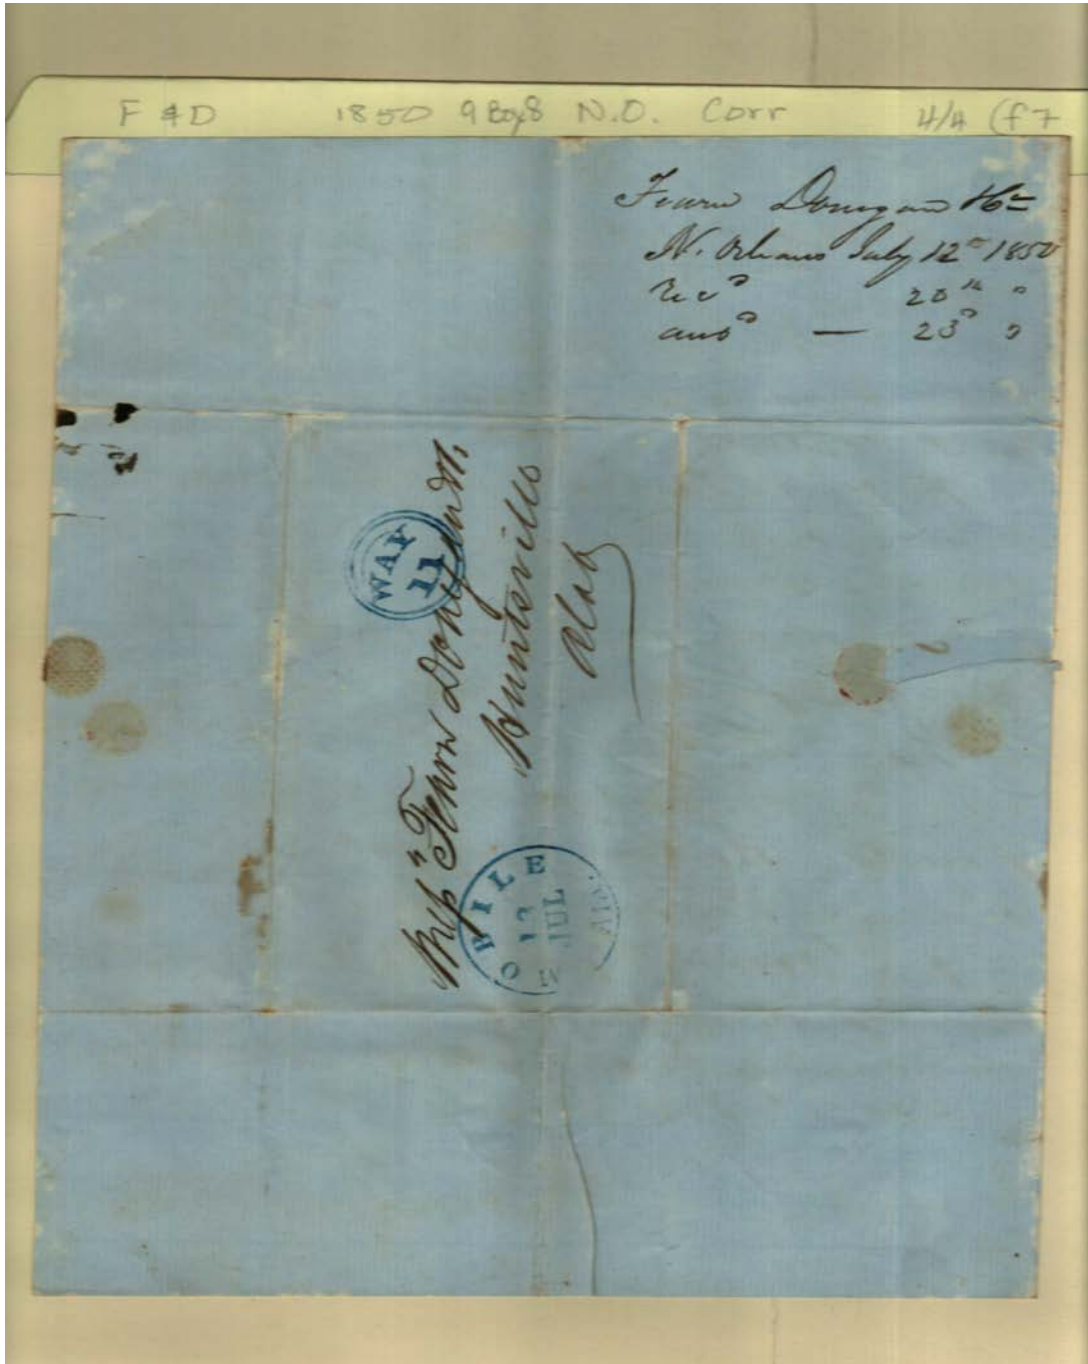 F & D 1850 9 Box 8 N.O. Corr 4/4 (f 7
Fearn Donegan & Co
N. Orleans July 12th 1850
Recd 20th "
ansd — 23d "
WAY
11
Messrs Fearn Donegan & Co
Huntsville
Alab
MOBILE
13
JUL